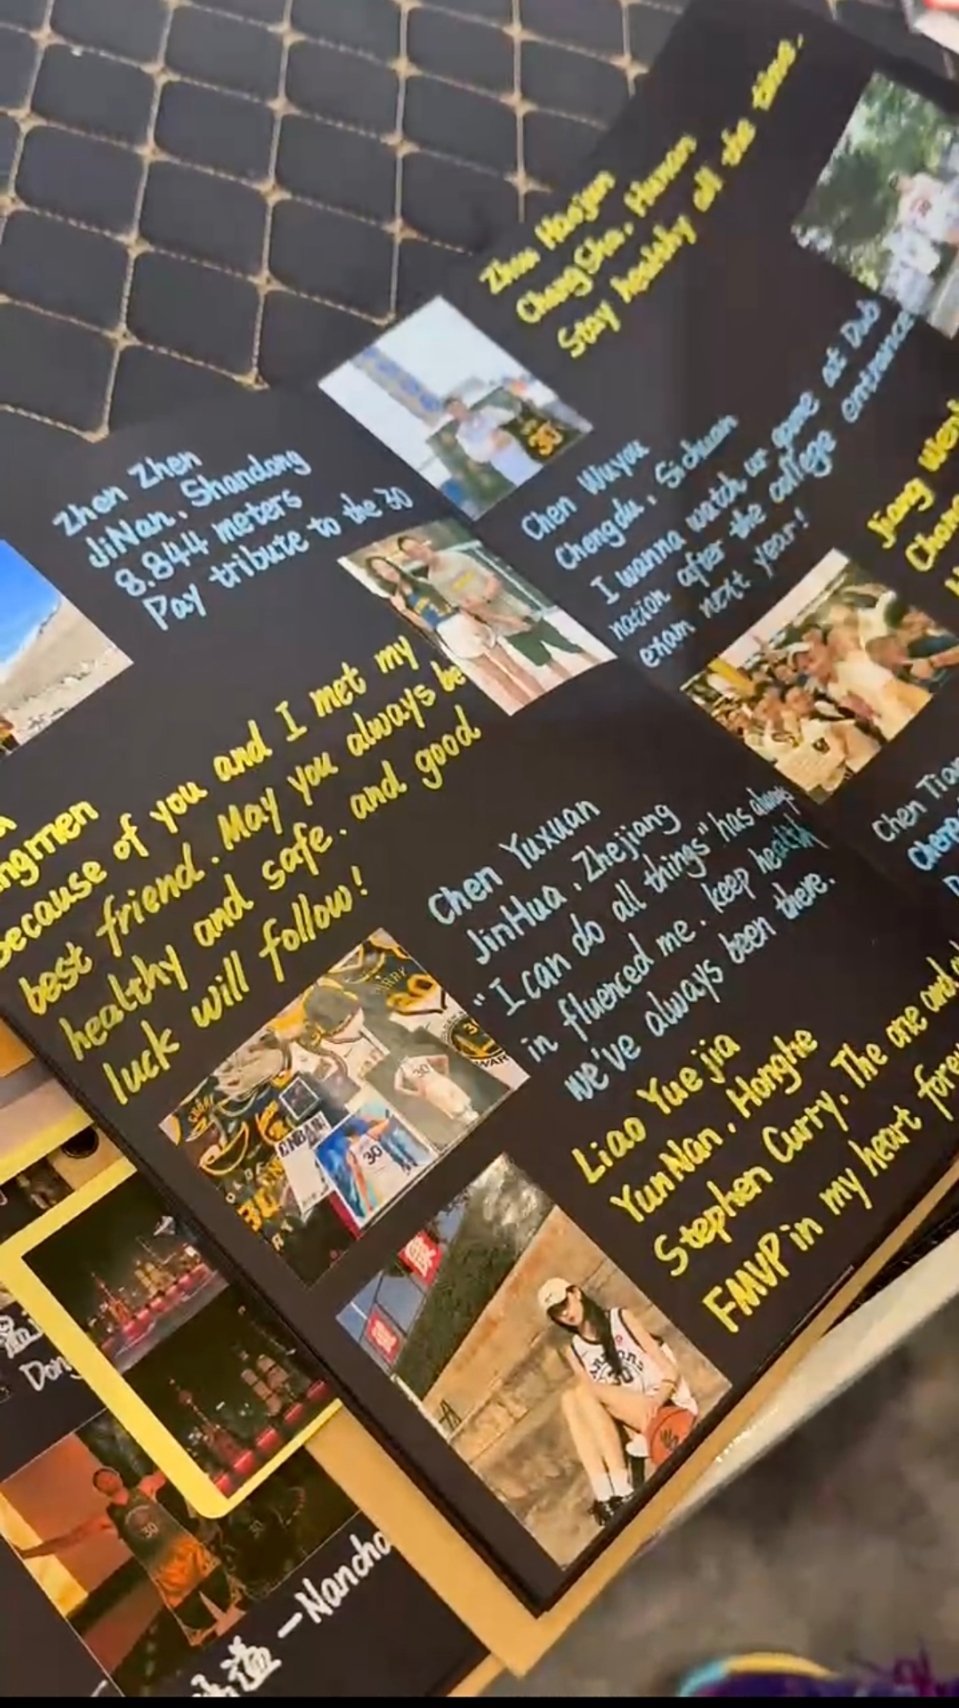 Zhou Haojun
ChangSha, Hunan
Stay healthy all the time.
Zhen Zhen
JiNan, Shandong
8.844 meters
Pay tribute to the 30
Chen Wuyou
Chengdu, Sichuan
I wanna watch ur game at Dub
nation after the college entrance
exam next year!
Jiang
ngmen
because of you and I met my
best friend. May you always be
healthy and safe. and good
luck will follow!
Chen Yuxuan
JinHua, Zhejiang
"I can do all things" has always
in fluenced me. keep health
we've always been there.
Chen Tian
Liao Yue jia
YunNan, Honghe
Stephen Curry, The one and
FMVP in my heart fore
30
CURRY
30
30
Dong
30
道 - Nancha